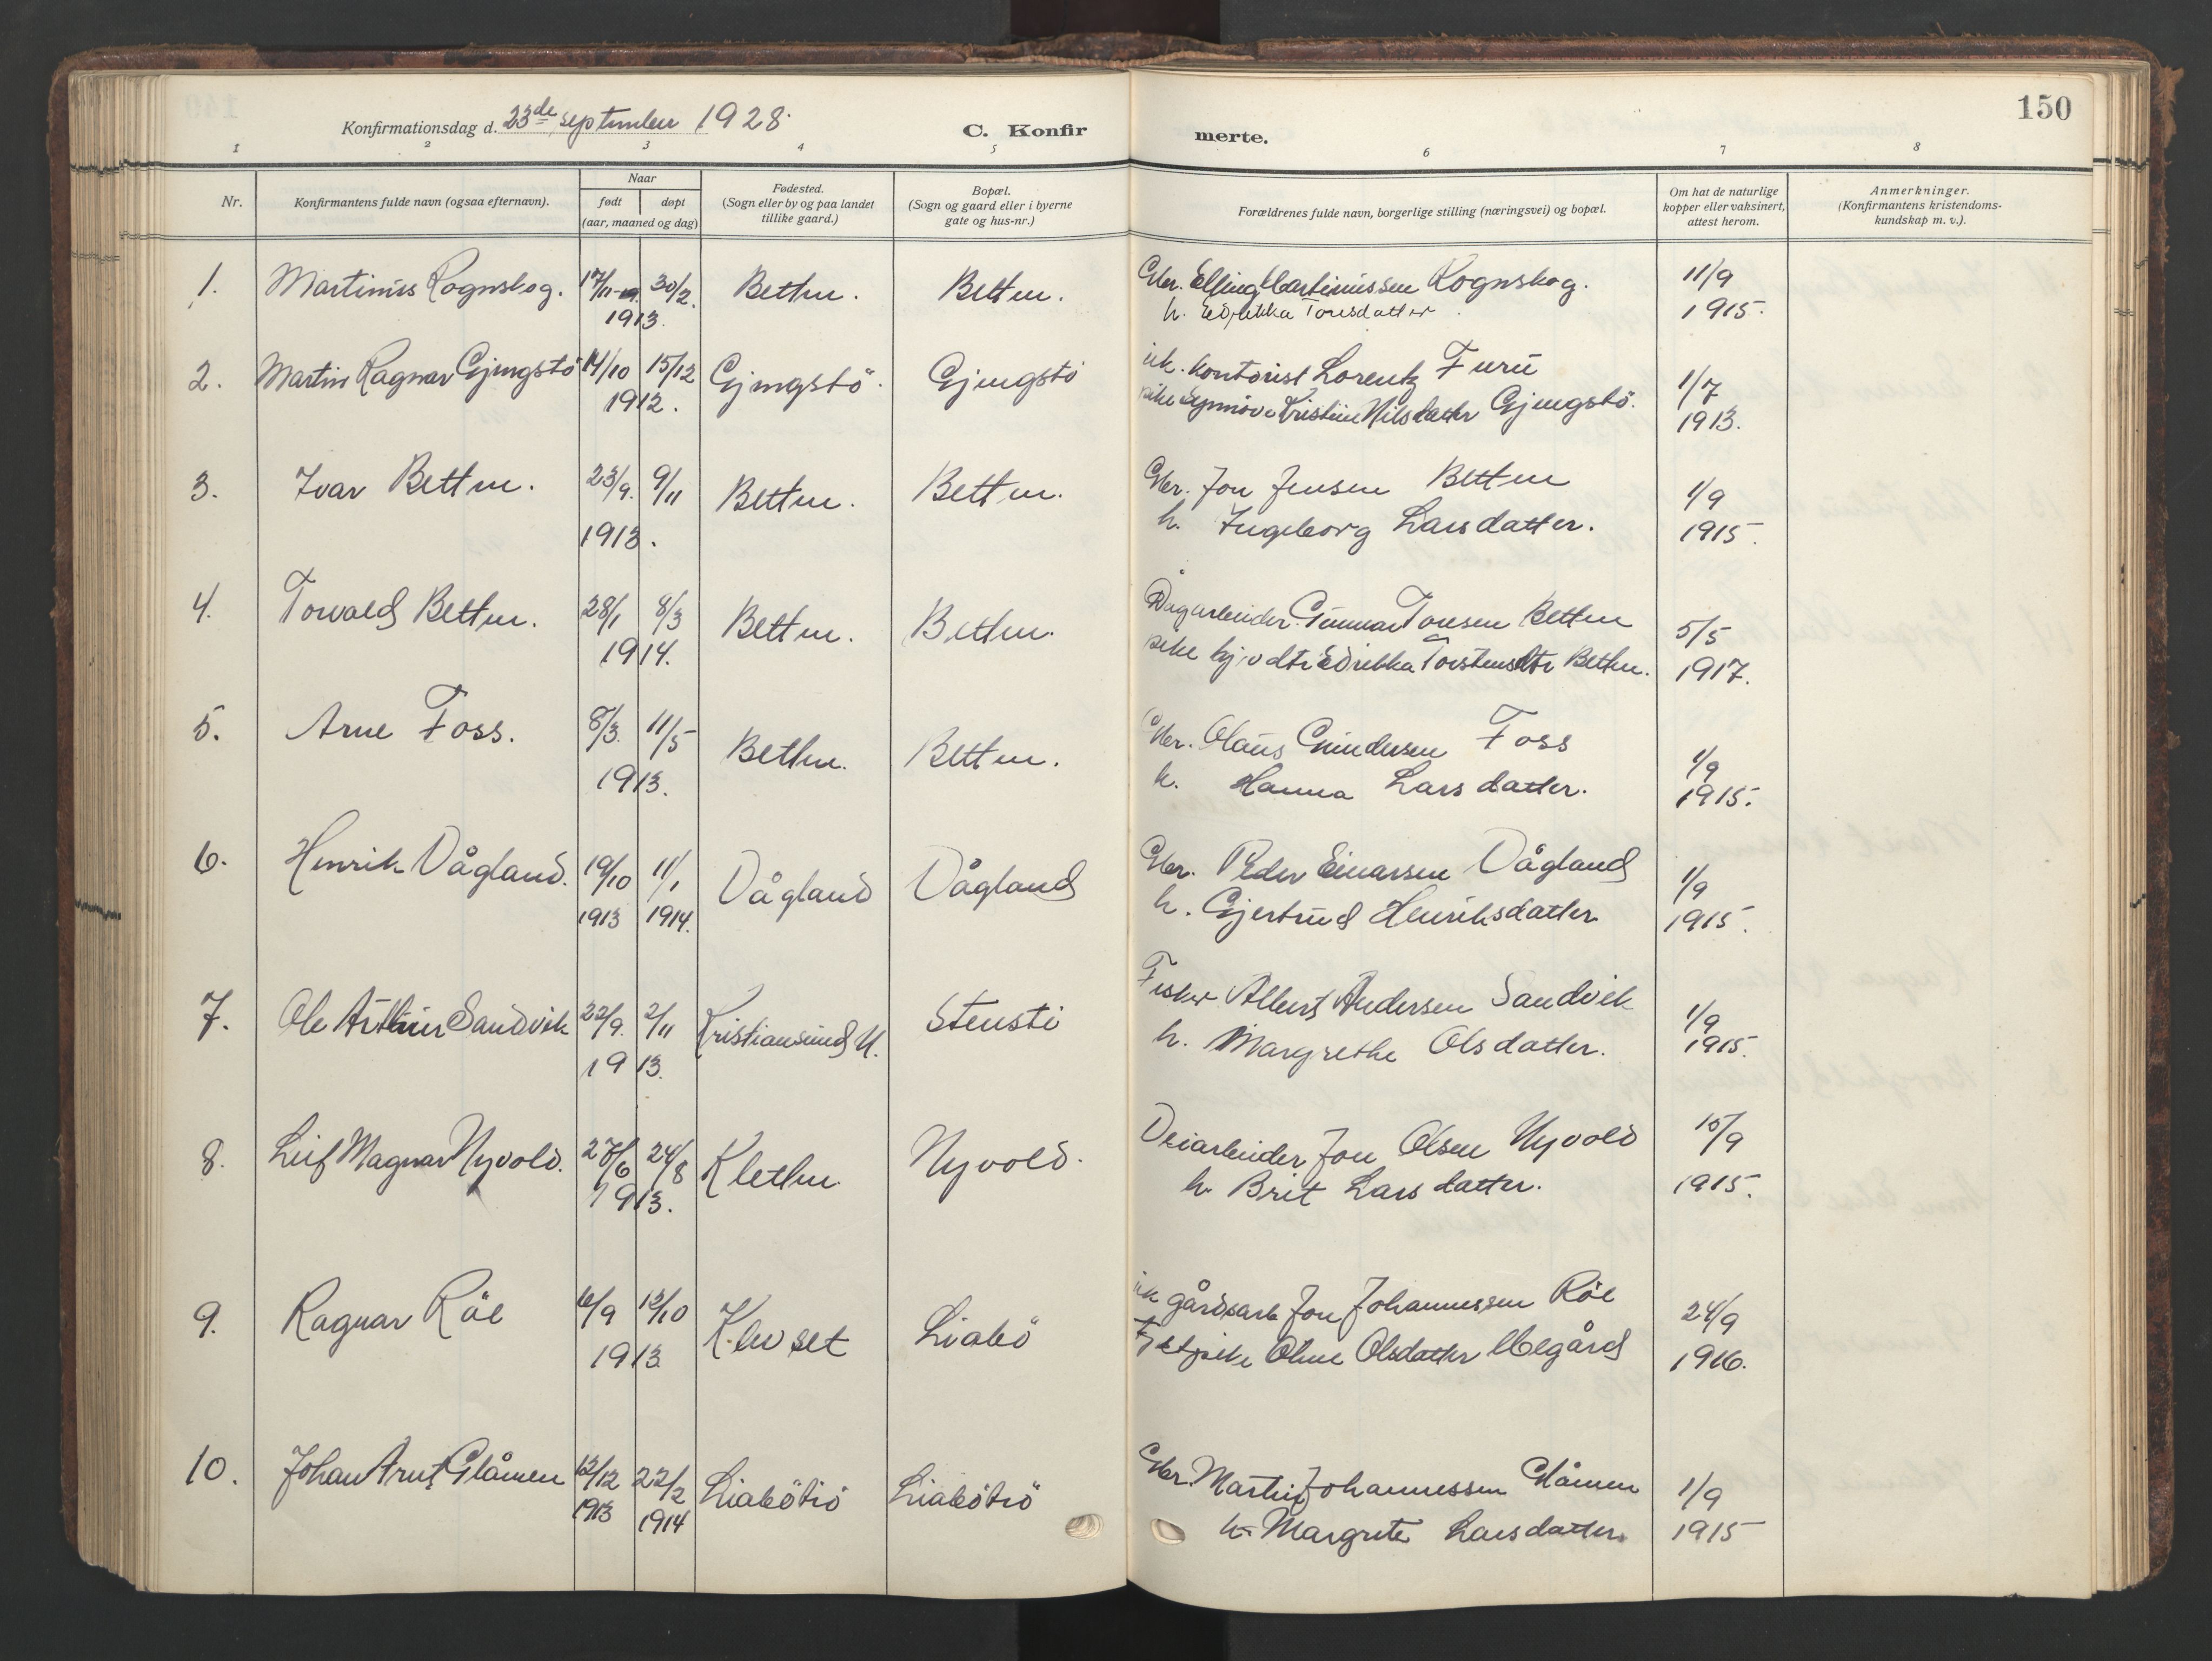 150
Konfirmationsdag d. 23de september 1928.
C. Konfir merte.
1 2 3 4 5 6 7 8
Nr.
Konfirmantens fulde navn (ogsaa efternavn).
Naar
født døpt
(aar, maaned og dag)
Fødested.
(Sogn eller by og paa landet
tillike gaard.)
Bopæl.
(Sogn og gaard eller i byerne
gate og hus-nr.)
Forældrenes fulde navn, borgerlige stilling (næringsvei) og bopæl.
Om hat de naturlige
kopper eller vaksinert,
attest herom.
Anmerkninger.
(Konfirmantens kristendoms-
kundskap m. v.).
1. Martinus Rognskog. 17/11 30/2. Betten. Betten. Gbr. Elling Martinussen Rognskog. 11/9
1913. h. Edrikka Toresdatter 1915.
2. Martin Ragnar Gjengstö 14/10 15/12 Gjengstö. Gjengstö uk. kontorist Lorentz Furu 1/7
1912. pike Synnöve Kristine Nilsdatter Gjengstö. 1913.
3. Ivar Betten. 23/9. 9/11 Betten. Betten. Gbr. Jon Jensen Betten 1/9
1913. h. Ingeborg Larsdatter. 1915.
4. Torvald Betten. 28/1 8/3 Betten. Betten. Dagarbeider Gunnar Toresen Betten 5/5
1914. pike Edrikka Torstensdtr Betten. 1917.
5. Arne Foss. 8/3. 11/5 Betten. Betten. Gbr. Olaus Gundersen Foss 1/9
1913. h. Hanna Larsdatter. 1915.
6. Henrik Vågland. 19/10 11/1 Vågland Vågland Gbr. Peder Einarsen Vågland 1/9
1913 1914. h. Gjertrud Henriksdatter 1915.
7. Ole Arthur Sandvik 22/9. 2/11 Kristiansund N. Stensti Fisker Albert Andersen Sandvik 1/9
1913. h. Margrethe Olsdatter. 1915.
8. Leif Magnar Nyvold. 27/6 24/8 Kletten Nyvold. Veiarbeider Jon Olsen Nyvold 15/9
1913. h. Brit Larsdatter. 1915.
9. Ragnar Röe 6/9 12/10 Klevset Liabö uk gårdsarb Jon Johannessen Röe 24/9
1913 Oline Olsdatter Megård 1916.
10. Johan Arnt Glåmen 12/12 22/2 Liabötrö Liabötrö Gbr. Martin Johannessen Glåmen 1/9
1913 1914 h. Margrete Larsdatter. 1915